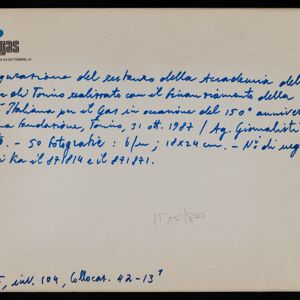 gas
XX SETTEMBRE, 41
gurazione del restauro della Accademia delle
di Torino realizzato con il finanziamento della
Italiana per il Gas in occasione del 150° anniver
fondazione, Torino, 31 ott. 1987 / Ag. Giornalisti
- 50 fotografie : b/n ; 18x24 cm. - N° di neg
il 871814 e il 871871.
inv. 104, Collocaz. 42-13